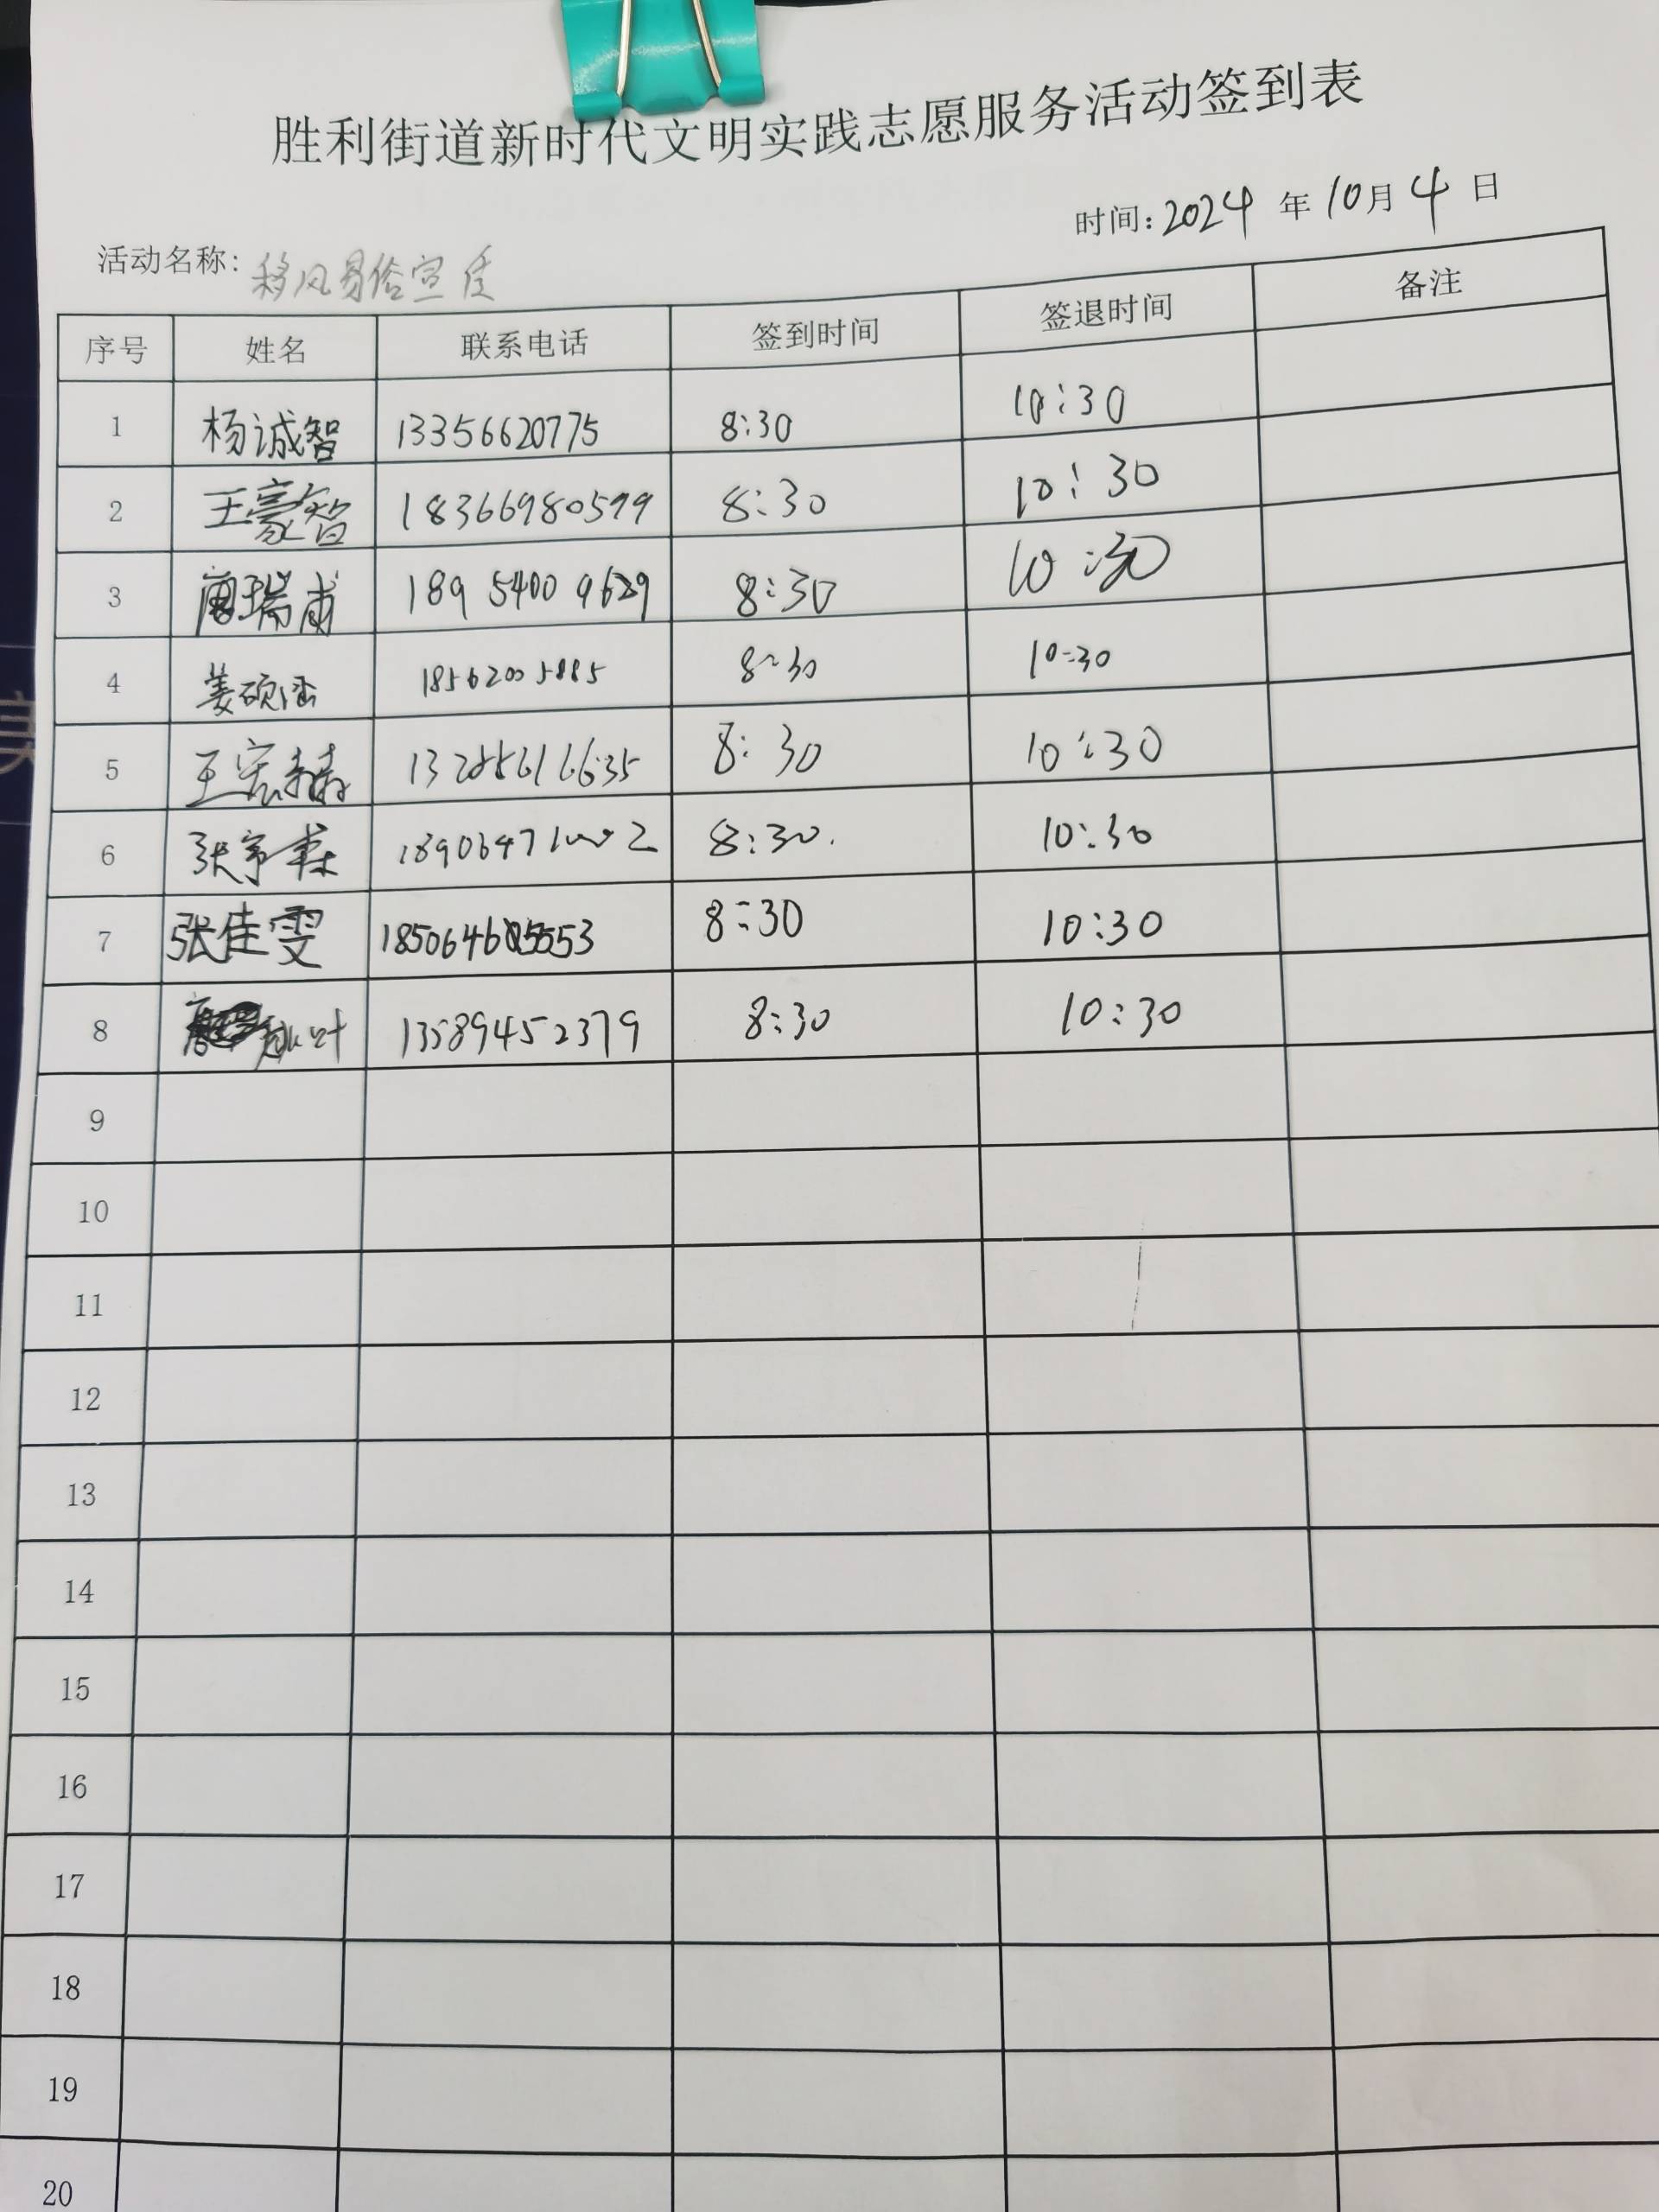 胜利街道新时代文明实践志愿服务活动签到表
时间：2024 年 10月 4 日
活动名称：移风易俗宣传
序号 姓名 联系电话 签到时间 签退时间 备注
1 杨诚智 13356620775 8:30 10:30
2 王豪智 18366980599 8:30 10:30
3 唐瑞甫 189 5400 9629 8:30 10:30
4 姜硕 8:30 10:30
5 王宏 8:30 10:30
6 张 8:30. 10:30
7 张佳雯 8:30 10:30
8 13589452379 8:30 10:30
9
10
11
12
13
14
15
16
17
18
19
20